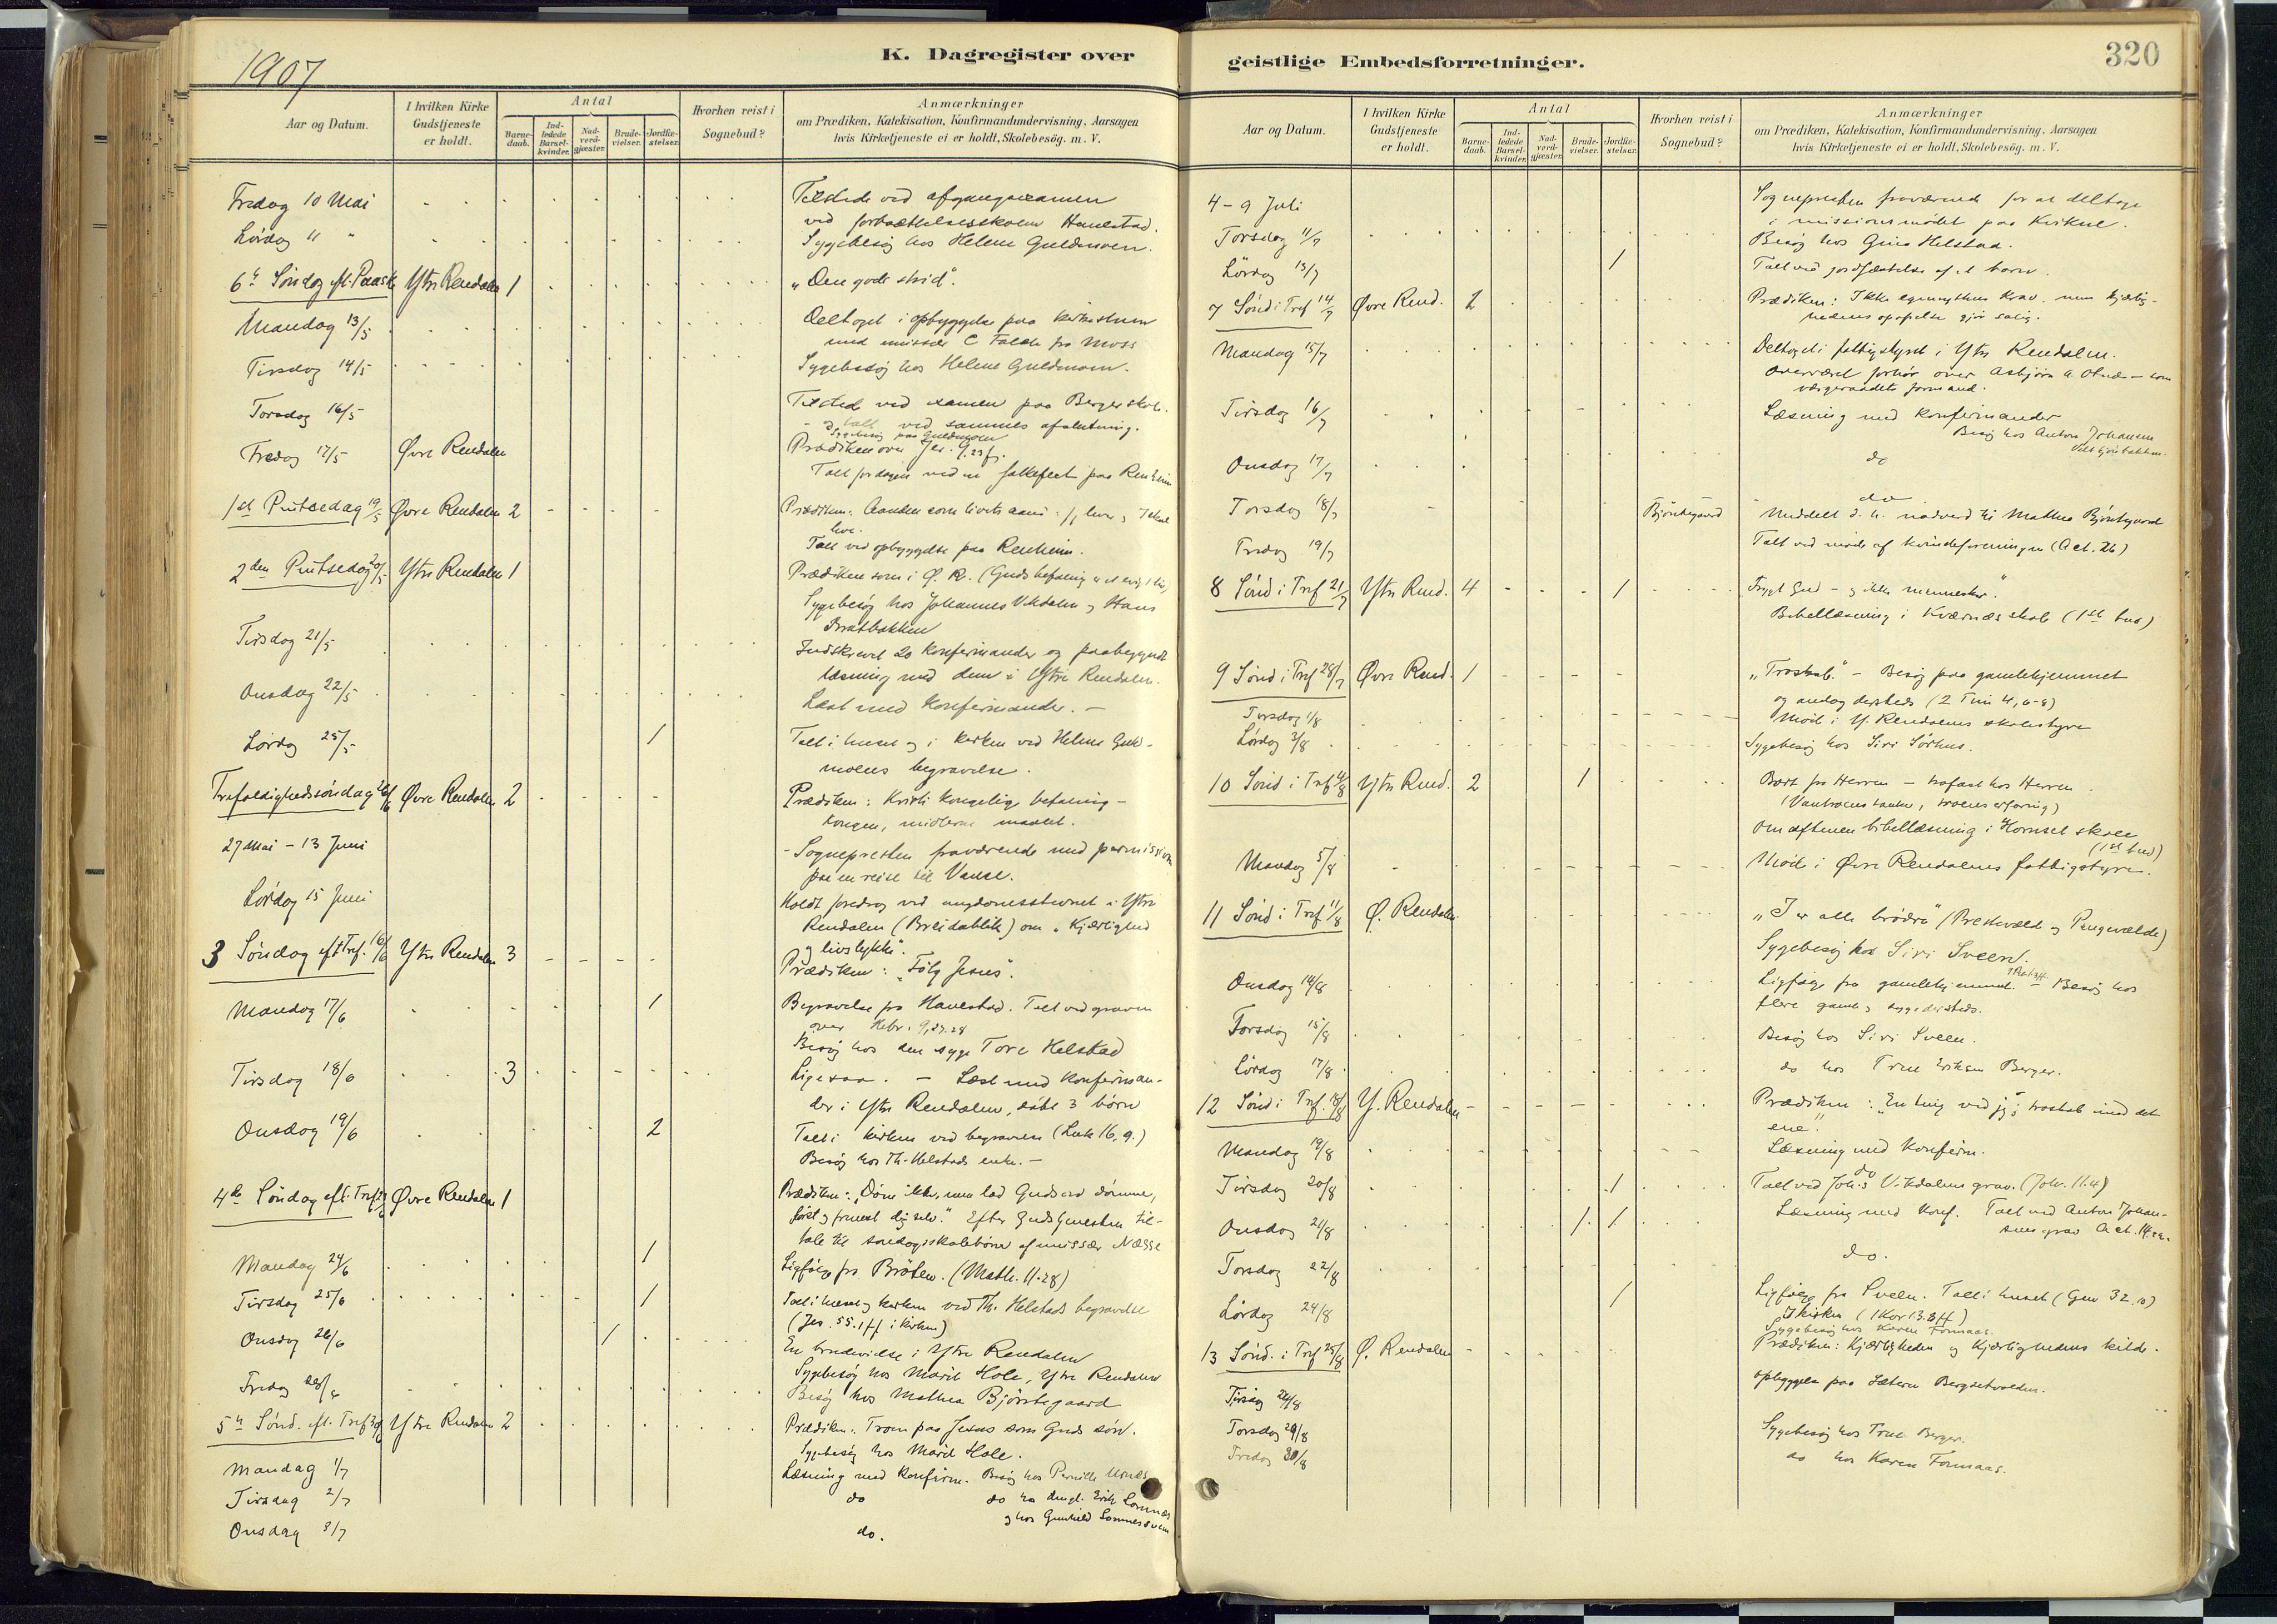 1907
K. Dagregister over
Aar og Datum.
I hvilken Kirke Gudstjeneste er holdt.
Antal
Barne-daab.
Ind-ledede Barsel-kvinder.
Nad-verd-gjæster.
Brude-vielser.
Jordfæ-stelser.
Hvorhen reist i Sognebud?
Anmærkninger
om Prædiken, Katekisation, Konfirmandundervisning, Aarsagen
hvis Kirketjeneste ei er holdt, Skolebesög. m. V.
Fredag 10 Mai Tilstede ved afgangsexamen
ved fortsættelsesskolen Hanestad.
Lördag 11 " Sygebesög hos Helene Guldmoen.
6te Söndag eft. Paaske Ytre Rendalen 1 "Den gode strid".
Mandag 13/5 Deltaget i opbyggelse paa
med C fra Moss
Tirsdag 14/5 Sygebesög hos Helene Guldmoen.
Torsdag 16/5 Tilstede ved examen paa Berger skole.
- talt ved sammes afslutning.
Sygebesög paa Guldmoen
Fredag 17/5 Øvre Rendalen Prædiken over Jer. 9.23 f.
Talt for dagen ved en folkefest paa
1ste Pintsedag 19/5 Øvre Rendalen 2 Prædiken: Aanden som livets aand: Jeg lever og I skal
leve.
Talt ved opbyggelse paa Renheim.
2den Pintsedag 20/5 Ytre Rendalen 1 Prædiken som i Ø. R. (Guds befaling er et evigt liv)
Sygebesög hos Johannes Vikdalen og Hans
Bratbakken
Tirsdag 21/5 Indskrevet 20 konfirmander og paabegyndt
læsning med dem i Ytre Rendalen.
Onsdag 22/5 Læst med konfirmander. -
Lördag 25/5 1 Talt i huset og i kirken ved Helene Guld-
moens begravelse.
Trefoldighedssöndag 26/5 Øvre Rendalen 2 Prædiken: Kristi kongelige befaling -
kongen, midlerne maalet.
27 Mai - 13 Juni - Sognepresten fraværende med permission
paa en reise til Vanse.
Lördag 15 Juni Holdt foredrag ved ungdomsstevnet i Ytre
Rendalen (Breidablik) om "Kjærlighed
og livslykke".
3 Söndag eft Tref. 16/6 Ytre Rendalen 3 Prædiken: "Fölg Jesus".
Mandag 17/6 1 Begravelse fra Hanestad. Talt ved graven
over Hebr. 9,27.28
Besög hos den syge Tore Helstad
Tirsdag 18/6 3 Ligesaa. - Læst med konfirman-
der i Ytre Rendalen, döbt 3 börn
Onsdag 19/6 2 Talt i kirken ved begravelse (Luk 16, 9.)
Besög hos Th. Helstads enke. -
4de Söndag eft. Tref 23/6 Øvre Rendalen 1 Prædiken: "Döm ikke, men lad Guds ord dömme,
först og fremst dig selv." Efter Gudstjenesten til-
tale til söndagsskolebörn af missær Næsse
Mandag 24/6 1 Ligfölge fra Bröten. (Matth. 11.28)
Tirsdag 25/6 1 Talt i huset og kirken ved Th. Helstads begravelse
(Jes. 55.1ff i kirken)
Onsdag 26/6 1 En brudevielse i Ytre Rendalen
Sygebesög hos Marit Hole, Ytre Rendalen
Fredag 28/6 Besög hos Mathea Björstegaard
5te Sönd. eft. Tref 30/6 Ytre Rendalen 2 Prædiken: Troen paa Jesus som Guds sön.
Sygebesög hos Marit Hole.
Mandag 1/7 Læsning med konfirm. Besög hos Pernille
Tirsdag 2/7 do do hos Erik
og hos Gunhild
Onsdag 3/7 do.
geistlige Embedsforretninger.
320
Aar og Datum.
I hvilken Kirke Gudstjeneste er holdt.
Antal
Barne-daab.
Ind-ledede Barsel-kvinder.
Nad-verd-gjæster.
Brude-vielser.
Jordfæ-stelser.
Hvorhen reist i Sognebud?
Anmærkninger
om Prædiken, Katekisation, Konfirmandundervisning, Aarsagen
hvis Kirketjeneste ei er holdt, Skolebesög. m. V.
4 - 9 Juli Sognepresten fraværende for at deltage
i missionsmödet paa Kvikne.
Torsdag 11/7 Besög hos Gina Helstad.
Lördag 13/7 1 Talt ved jordfæstelse af et barn.
7 Sönd i Tref 14/7 Øvre Rend. 2 Prædiken: Ikke krav, men kjærlig-
hedens opofrelse gjör salig.
Mandag 15/7 Deltaget i fattigstyret i Ytre Rendalen.
Overværet forhör over Asbjörn - som
værgeraadets formand.
Tirsdag 16/7 Læsning med konfirmander
Besög hos Anton Johansen
Onsdag 17/7 do
Torsdag 18/7 Björstegaard do
Meddelt d. h. nadverd til Mathea Björstegaard
Fredag 19/7 Talt ved möde af kvindeforeningen (Act. 26)
8 Sönd i Tref 21/7 Ytre Rend. 4 1 Frygt Gud - og ikke mennesker".
Bibellæsning i Kværnæs skole (1ste bud)
9 Sönd i Tref 28/7 Øvre Rend. 1 "Troskab". - Besög paa gamlehjemmet
og andag dersteds (2 Tim 4, 6-8)
Torsdag 1/8 Möd i Y. Rendalens skolestyre
Lördag 3/8 Sygebesög hos Siri Sörhus.
10 Sönd i Tref 4/8 Ytre Rend. 2 1 Bort fra Herren - trofast hos Herren.
(Vantroens tanke, troens erfaring)
Om aftenen bibellæsning i Hornset skole
(1ste bud)
Mandag 5/8 Möd i Øvre Rendalens fattigstyre.
11 Sönd i Tref 11/8 Ø. Rendalen "I er alle brödre" ( og Pengevælde)
Sygebesög hos Siri Sveen.
Onsdag 14/8 Ligfölge fra gamlehjemmet. - Besög hos
flere gamle og syge dersteds.
Torsdag 15/8 Besög hos Siri Sveen.
Lördag 17/8 do hos True Eriksen Berger.
12 Sönd i Tref. 18/8 Y. Rendalen Prædiken: "En ting ved jeg"; troskab mod det
ene".
Mandag 19/8 Læsning med konfirm.
do
Tirsdag 20/8 1 Talt ved Joh.s Vikdalens grav. (Joh. 11.4)
Onsdag 21/8 1 1 Læsning med konf. Talt ved Anton Johan-
sens grav Act. 14.22.
Torsdag 22/8 do.
Lördag 24/8 1 Ligfölge fra Sveen. Talt i huset (Gen 32.10)
I kirken (1 Kor 13.8ff)
Sygebesög hos Karen Fonnaas.
13 Sönd. i Tref 25/8 Ø. Rendalen Prædiken: Kjærligheden og Kjærlighedens kilde.
Tirsdag 27/8 Opbyggelse paa Sæteren Bergsetvolden.
Torsdag 29/8 Sygebesög hos True Berger.
Fredag 30/8 do hos Karen Fonnaas.